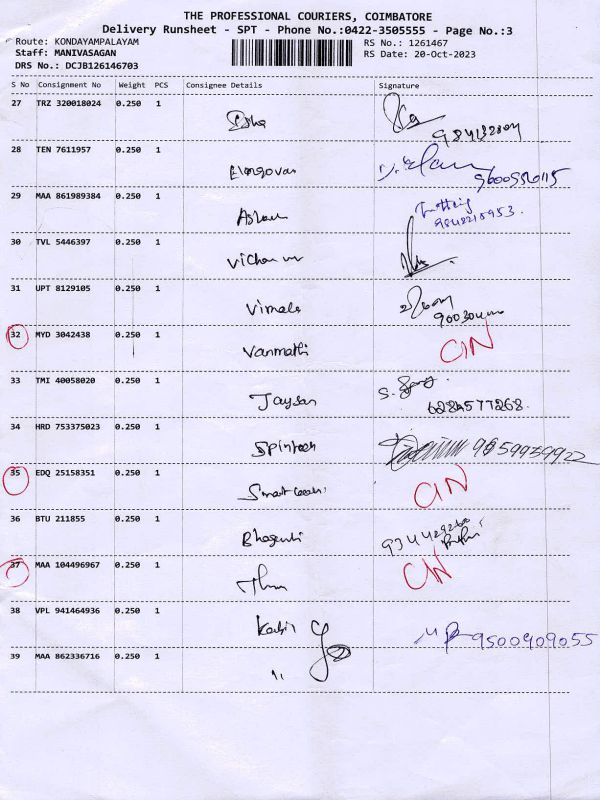 THE PROFESSIONAL COURIERS, COIMBATORE
Delivery Runsheet - SPT - Phone No.:0422-3505555 - Page No.:3
Route: KONDAYAMPALAYAM RS No.: 1261467
Staff: MANIVASAGAN RS Date: 20-Oct-2023
DRS No.: DCJB126146703
S No Consignment No Weight PCS Consignee Details Signature
27 TRZ 320018024 0.250 1
28 TEN 7611957 0.250 1 Elangovan
9600556115
29 MAA 861989384 0.250 1
30 TVL 5446397 0.250 1
31 UPT 8129105 0.250 1 Vimala
32 MYD 3042438 0.250 1 Vanmathi C/N
33 TMI 40058020 0.250 1 Jaysan
6284577268
34 HRD 753375023 0.250 1 Spintech 9859959922
35 EDQ 25158351 0.250 1 C/N
36 BTU 211855 0.250 1
37 MAA 104496967 0.250 1 C/N
38 VPL 941464936 0.250 1 Kabir 9500909055
39 MAA 862336716 0.250 1 "